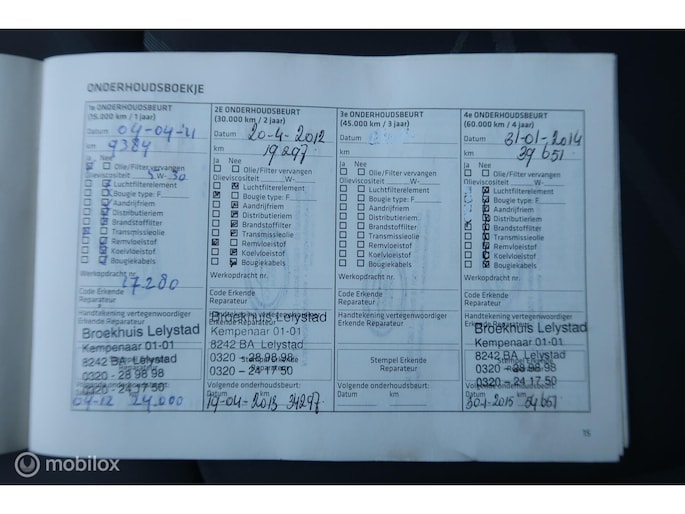 ONDERHOUDSBOEKJE
1e ONDERHOUDSBEURT
(15.000 km / 1 jaar)
Datum 04-04-11
km 9384
Ja Nee
Olie/Filter vervangen
Olieviscositeit 5 W- 30
Luchtfilterelement
Bougie type: F
Aandrijfriem
Distributieriem
Brandstoffilter
Transmissieolie
Remvloeistof
Koelvloeistof
Bougiekabels
Werkopdracht nr.
17.280
Code Erkende
Reparateur
Handtekening vertegenwoordiger
Erkende Reparateur
Broekhuis Lelystad
Kempenaar 01-01
8242 BA Lelystad
0320 - 28 98 98
0320 - 24 17 50
Volgende onderhoudsbeurt:
04-12 24.000
2E ONDERHOUDSBEURT
(30.000 km / 2 jaar)
Datum 20-4-2012
km 19297
Ja Nee
Olie/Filter vervangen
Olieviscositeit W-
Luchtfilterelement
Bougie type: F
Aandrijfriem
Distributieriem
Brandstoffilter
Transmissieolie
Remvloeistof
Koelvloeistof
Bougiekabels
Werkopdracht nr.
Code Erkende
Reparateur
Handtekening vertegenwoordiger
Erkende Reparateur
Broekhuis Lelystad
Kempenaar 01-01
8242 BA Lelystad
0320 - 28 98 98
Stempel Erkende
Reparateur
0320 - 24 17 50
Volgende onderhoudsbeurt:
Datum km
19-04-2013 34297
3e ONDERHOUDSBEURT
(45.000 km / 3 jaar)
Datum
km
Ja Nee
Olie/Filter vervangen
Olieviscositeit W-
Luchtfilterelement
Bougie type: F
Aandrijfriem
Distributieriem
Brandstoffilter
Transmissieolie
Remvloeistof
Koelvloeistof
Bougiekabels
Werkopdracht nr.
Code Erkende
Reparateur
Handtekening vertegenwoordiger
Erkende Reparateur
Stempel Erkende
Reparateur
Volgende onderhoudsbeurt:
Datum km
4e ONDERHOUDSBEURT
(60.000 km / 4 jaar)
Datum 31-01-2014
km 39651
Ja Nee
Olie/Filter vervangen
Olieviscositeit W-
Luchtfilterelement
Bougie type: F
Aandrijfriem
Distributieriem
Brandstoffilter
Transmissieolie
Remvloeistof
Koelvloeistof
Bougiekabels
Werkopdracht nr.
Code Erkende
Reparateur
Handtekening vertegenwoordiger
Erkende Reparateur
Broekhuis Lelystad
Kempenaar 01-01
8242 BA Lelystad
0320 - 28 98 98
0320 - 24 17 50
Volgende onderhoudsbeurt:
Datum km
30-1-2015 54651
15
mobilox